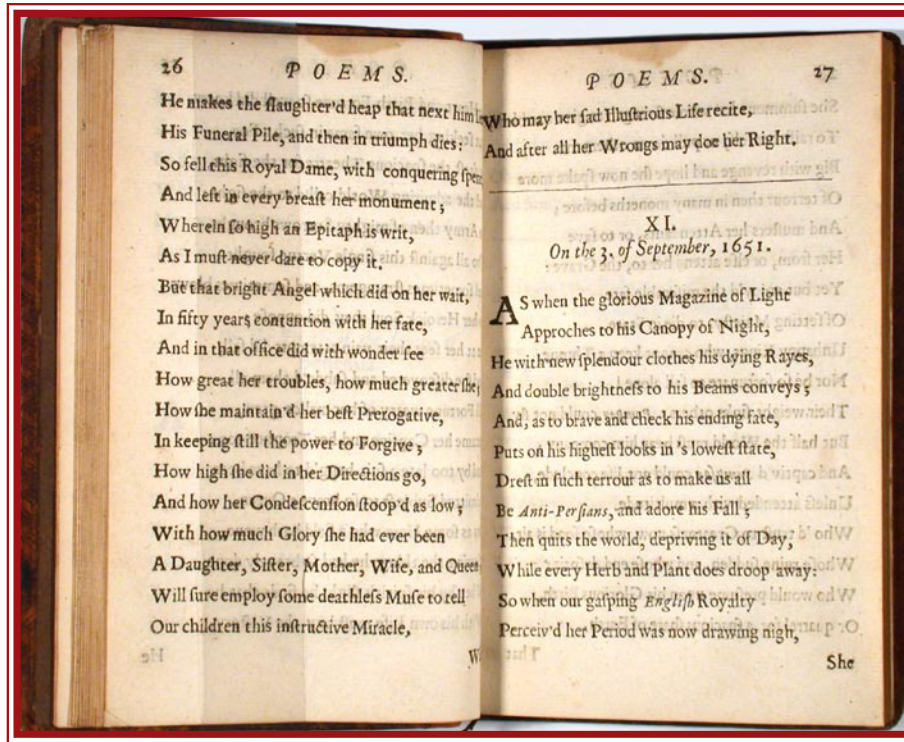 26
POEMS.
He makes the ſlaughter'd heap that next him
His Funeral Pile, and then in triumph dies:
So fell this Royal Dame, with conquering
And left in every breaſt her monument;
Wherein ſo high an Epitaph is writ,
As I muſt never dare to copy it.
But that bright Angel which did on her wait,
In fifty years contention with her fate,
And in that office did with wonder ſee
How great her troubles, how much greater ſhe;
How ſhe maintain'd her beſt Prerogative,
In keeping ſtill the power to Forgive;
How high ſhe did in her Directions go,
And how her Condeſcenſion ſtoop'd as low;
With how much Glory ſhe had ever been
A Daughter, Siſter, Mother, Wife, and Queen
Will ſure employ ſome deathleſs Muſe to tell
Our children this inſtructive Miracle,
POEMS.
27
Who may her ſad Illuſtrious Life recite,
And after all her Wrongs may doe her Right.
XI.
On the 3. of September, 1651.
AS when the glorious Magazine of Light
Approches to his Canopy of Night,
He with new ſplendour clothes his dying Rayes,
And double brightneſs to his Beams conveys;
And, as to brave and check his ending fate,
Puts on his higheſt looks in 's loweſt ſtate,
Dreſt in ſuch terrour as to make us all
Be Anti-Perſians, and adore his Fall;
Then quits the world, depriving it of Day,
While every Herb and Plant does droop away:
So when our gaſping Engliſh Royalty
Perceiv'd her Period was now drawing nigh,
She